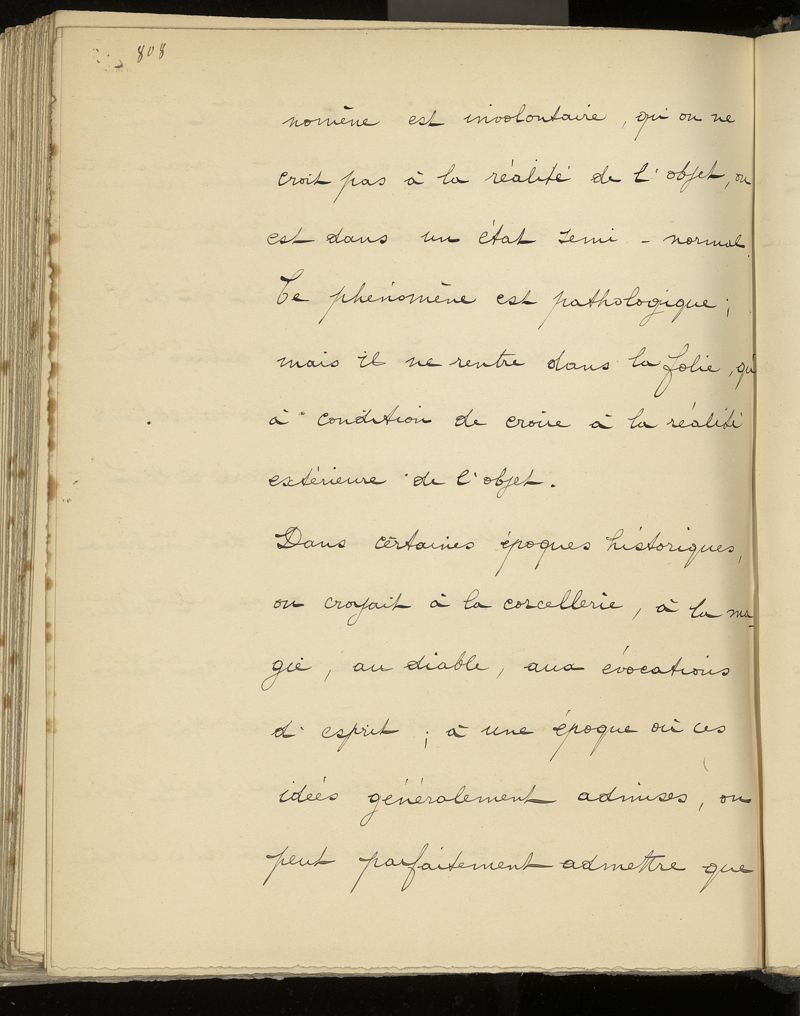 808
nomène est involontaire, qu'on ne
croit pas à la réalité de l'objet, on
est dans un état semi-normal.
Ce phénomène est pathologique;
mais il ne rentre dans la folie, qu'
à condition de croire à la réalité
extérieure de l'objet.
Dans certaines époques historiques,
on croyait à la corcellerie, à la ma-
gie, au diable, aux évocations
d'esprit; à une époque où ces
idées généralement admises, on
peut parfaitement admettre que